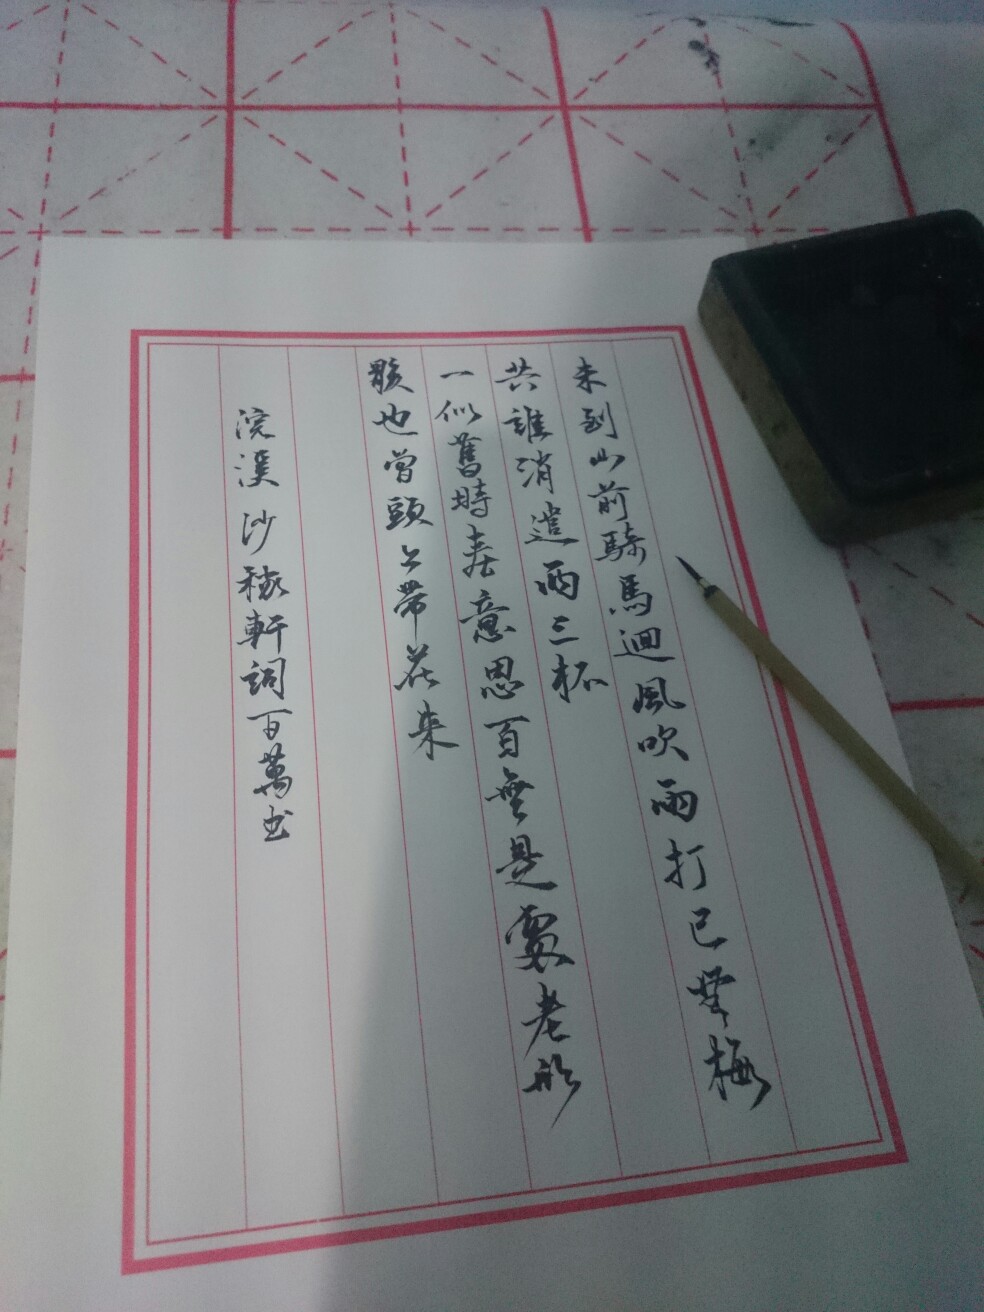 未到山前騎馬迴風吹雨打已無梅
共誰消遣兩三杯
一似舊時春意思百無是處老形
骸也曾頭上帶花來
浣溪沙稼軒詞百萬書